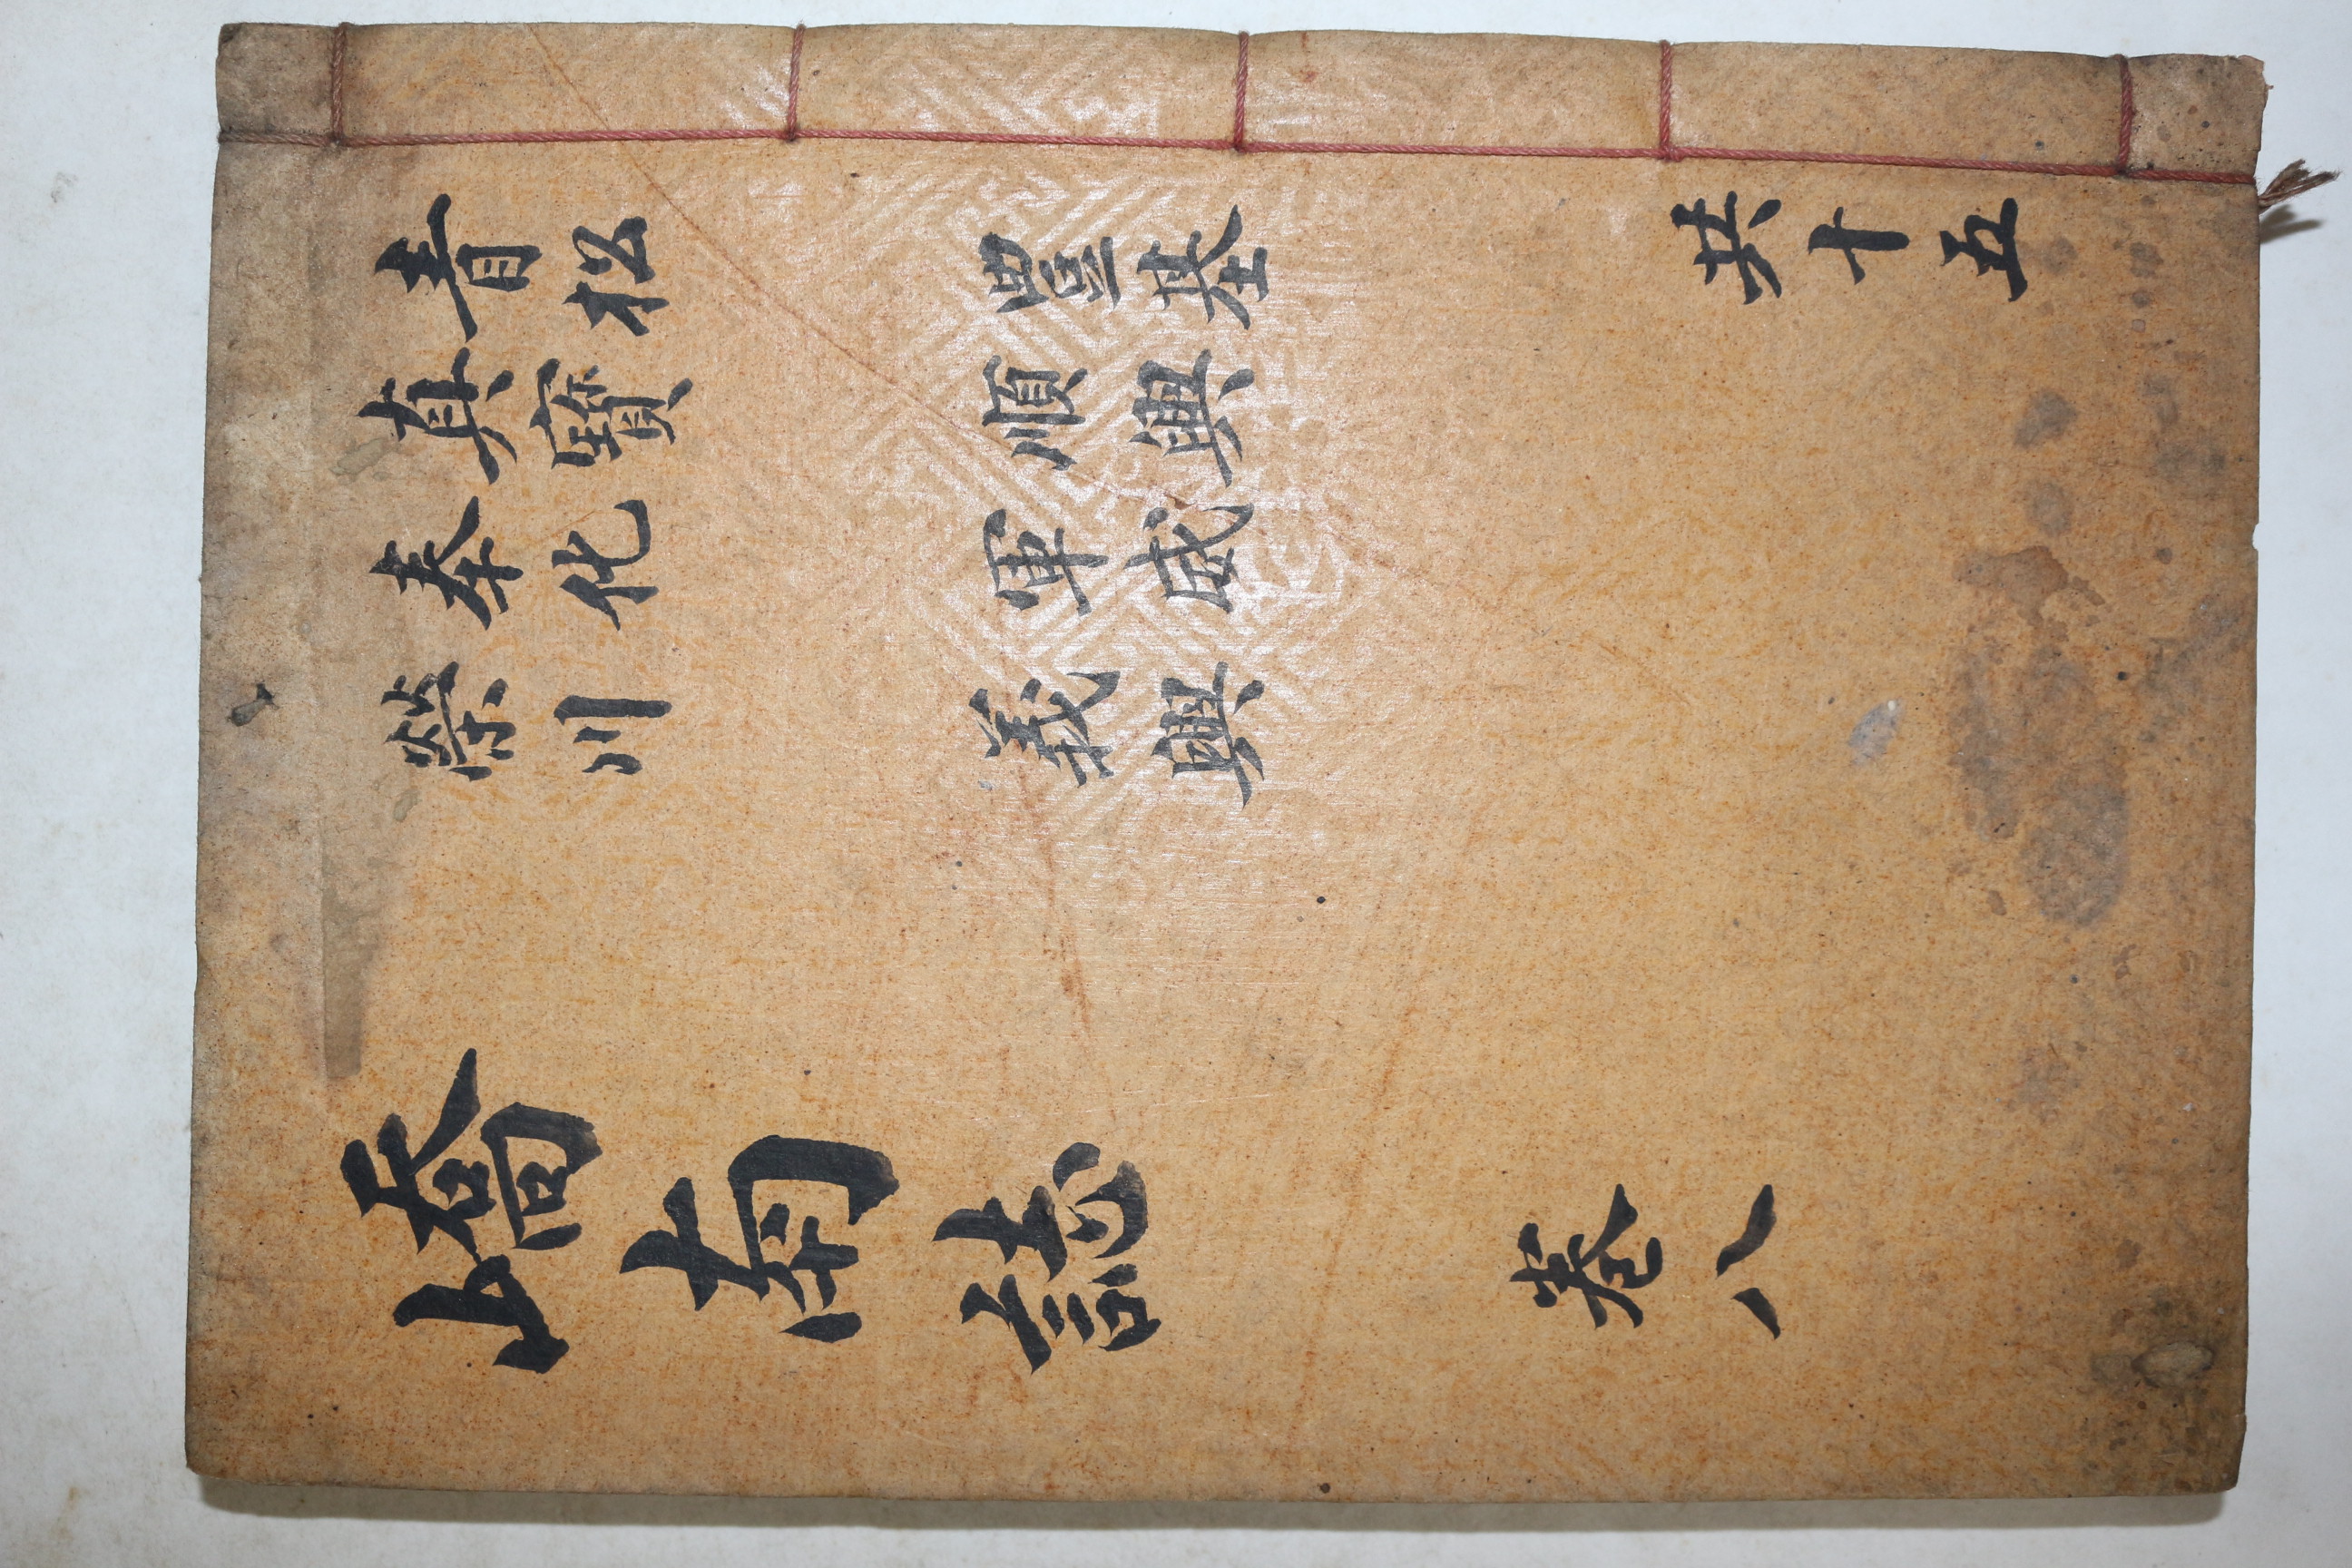 青松 豊基
真寶 順興
奉化 軍威
榮川 義興
共十五
嶠南誌 卷八